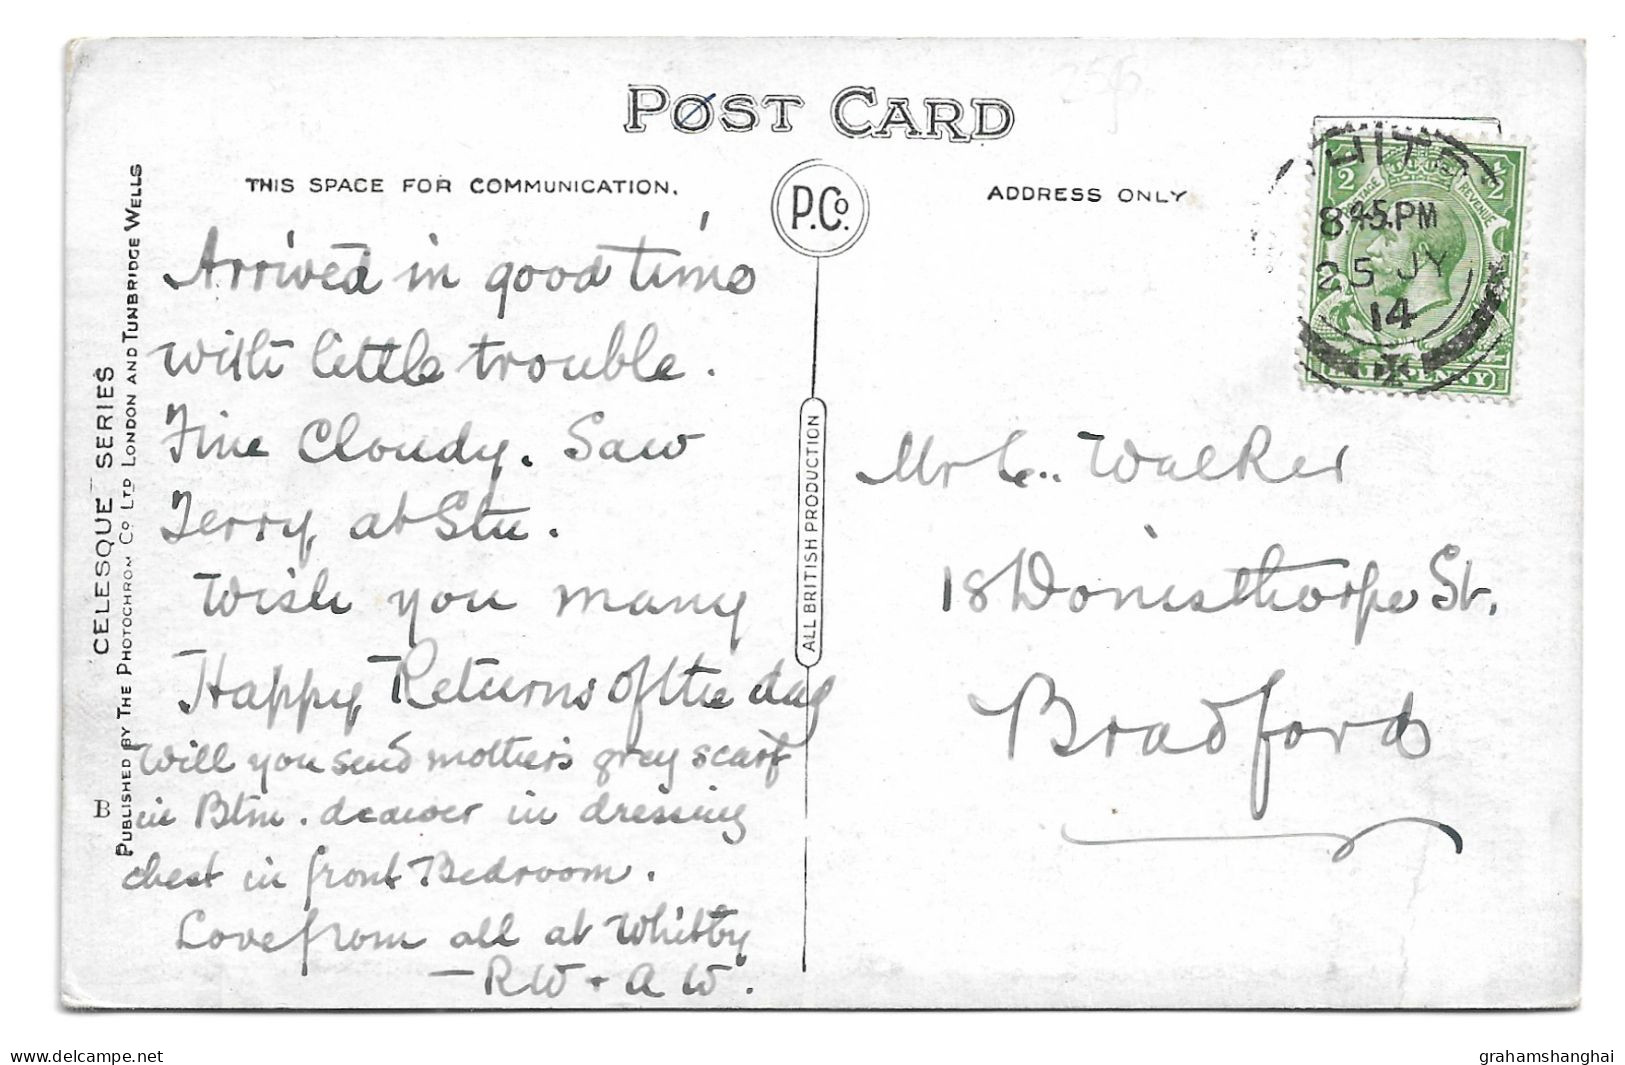 POST CARD
THIS SPACE FOR COMMUNICATION.
ADDRESS ONLY
P.Co.
ALL BRITISH PRODUCTION
CELESQUE SERIES
PUBLISHED BY THE PHOTOCHROM Co. LTD LONDON AND TUNBRIDGE WELLS
B
Arrived in good time
with little trouble.
Fine Cloudy. Saw
Terry at Stn.
Wish you many
Happy Returns of the day
Will you send mother's grey scarf
in Btm. drawer in dressing
chest in front Bedroom.
Love from all at Whitby
— R W + A W.
1/2 1/2
POSTAGE REVENUE
HALFPENNY
WHITB
8.45.PM
25 JY
14
Mr C. Walker
18 Donisthorpe St.
Bradford
www.delcampe.net
grahamshanghai